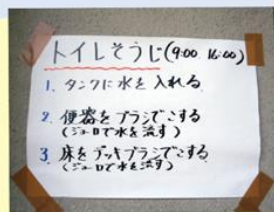 トイレそうじ(9:00 16:00)
1. タンクに水を入れる
2. 便器をブラシでこする
(ジョーロで水を流す)
3. 床をデッキブラシでこする
(ジョーロで水を流す)